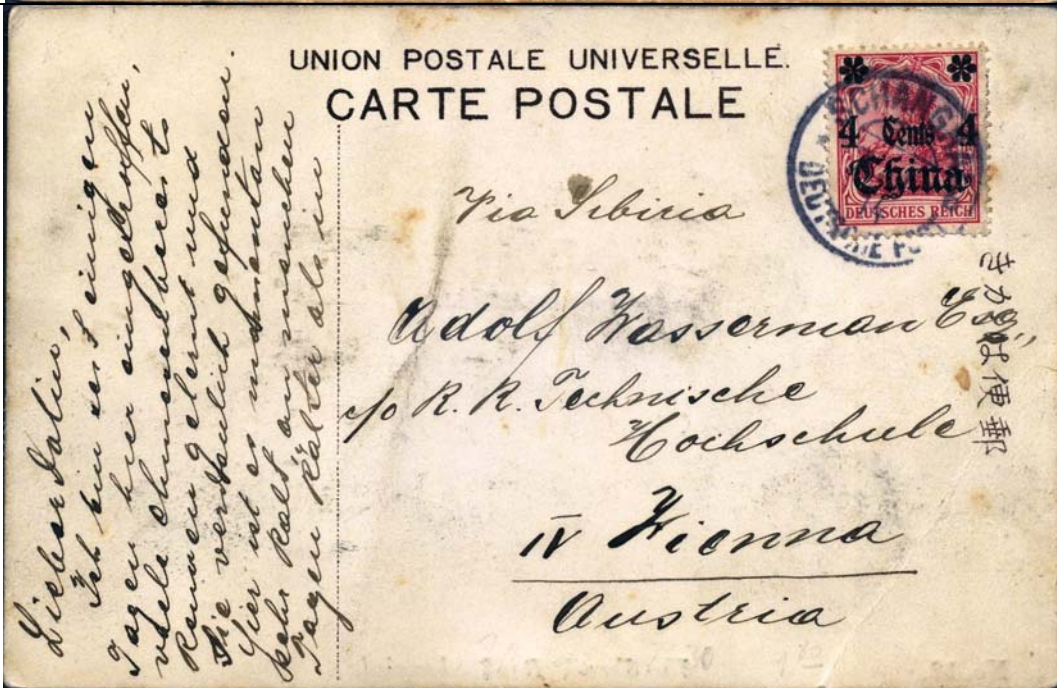 UNION POSTALE UNIVERSELLE.
CARTE POSTALE
4 Cents 4
China
DEUTSCHES REICH
Via Sibiria
Adolf Wasserman Esq.,
c/o K. K. Technische
Hochschule
IV Vienna
Austria
郵便はかき
Lieber
Ich bin erst einigen
Tagen hier eingetroffen,
viele bereits
kennen gelernt und
Sie verdaulich gefunden.
Hier ist es momentan
sehr kalt an manchen
Tagen kälter als in